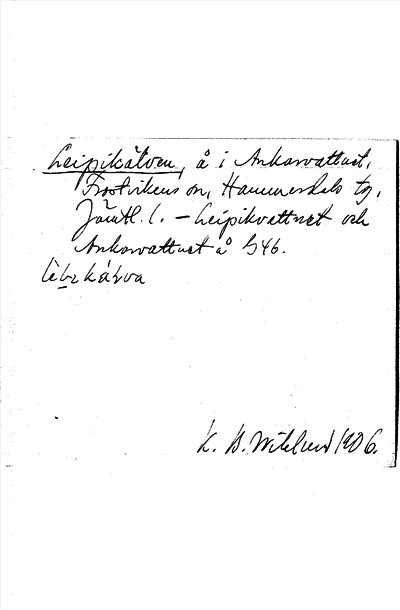 Leipikälven, å i Ankarvattnet,
Frostvikens sn, Hammerdals tg,
Jämtl. l. – Leipikvattnet och
Ankarvattnet å G46.
K. B. Wiklund 1906.